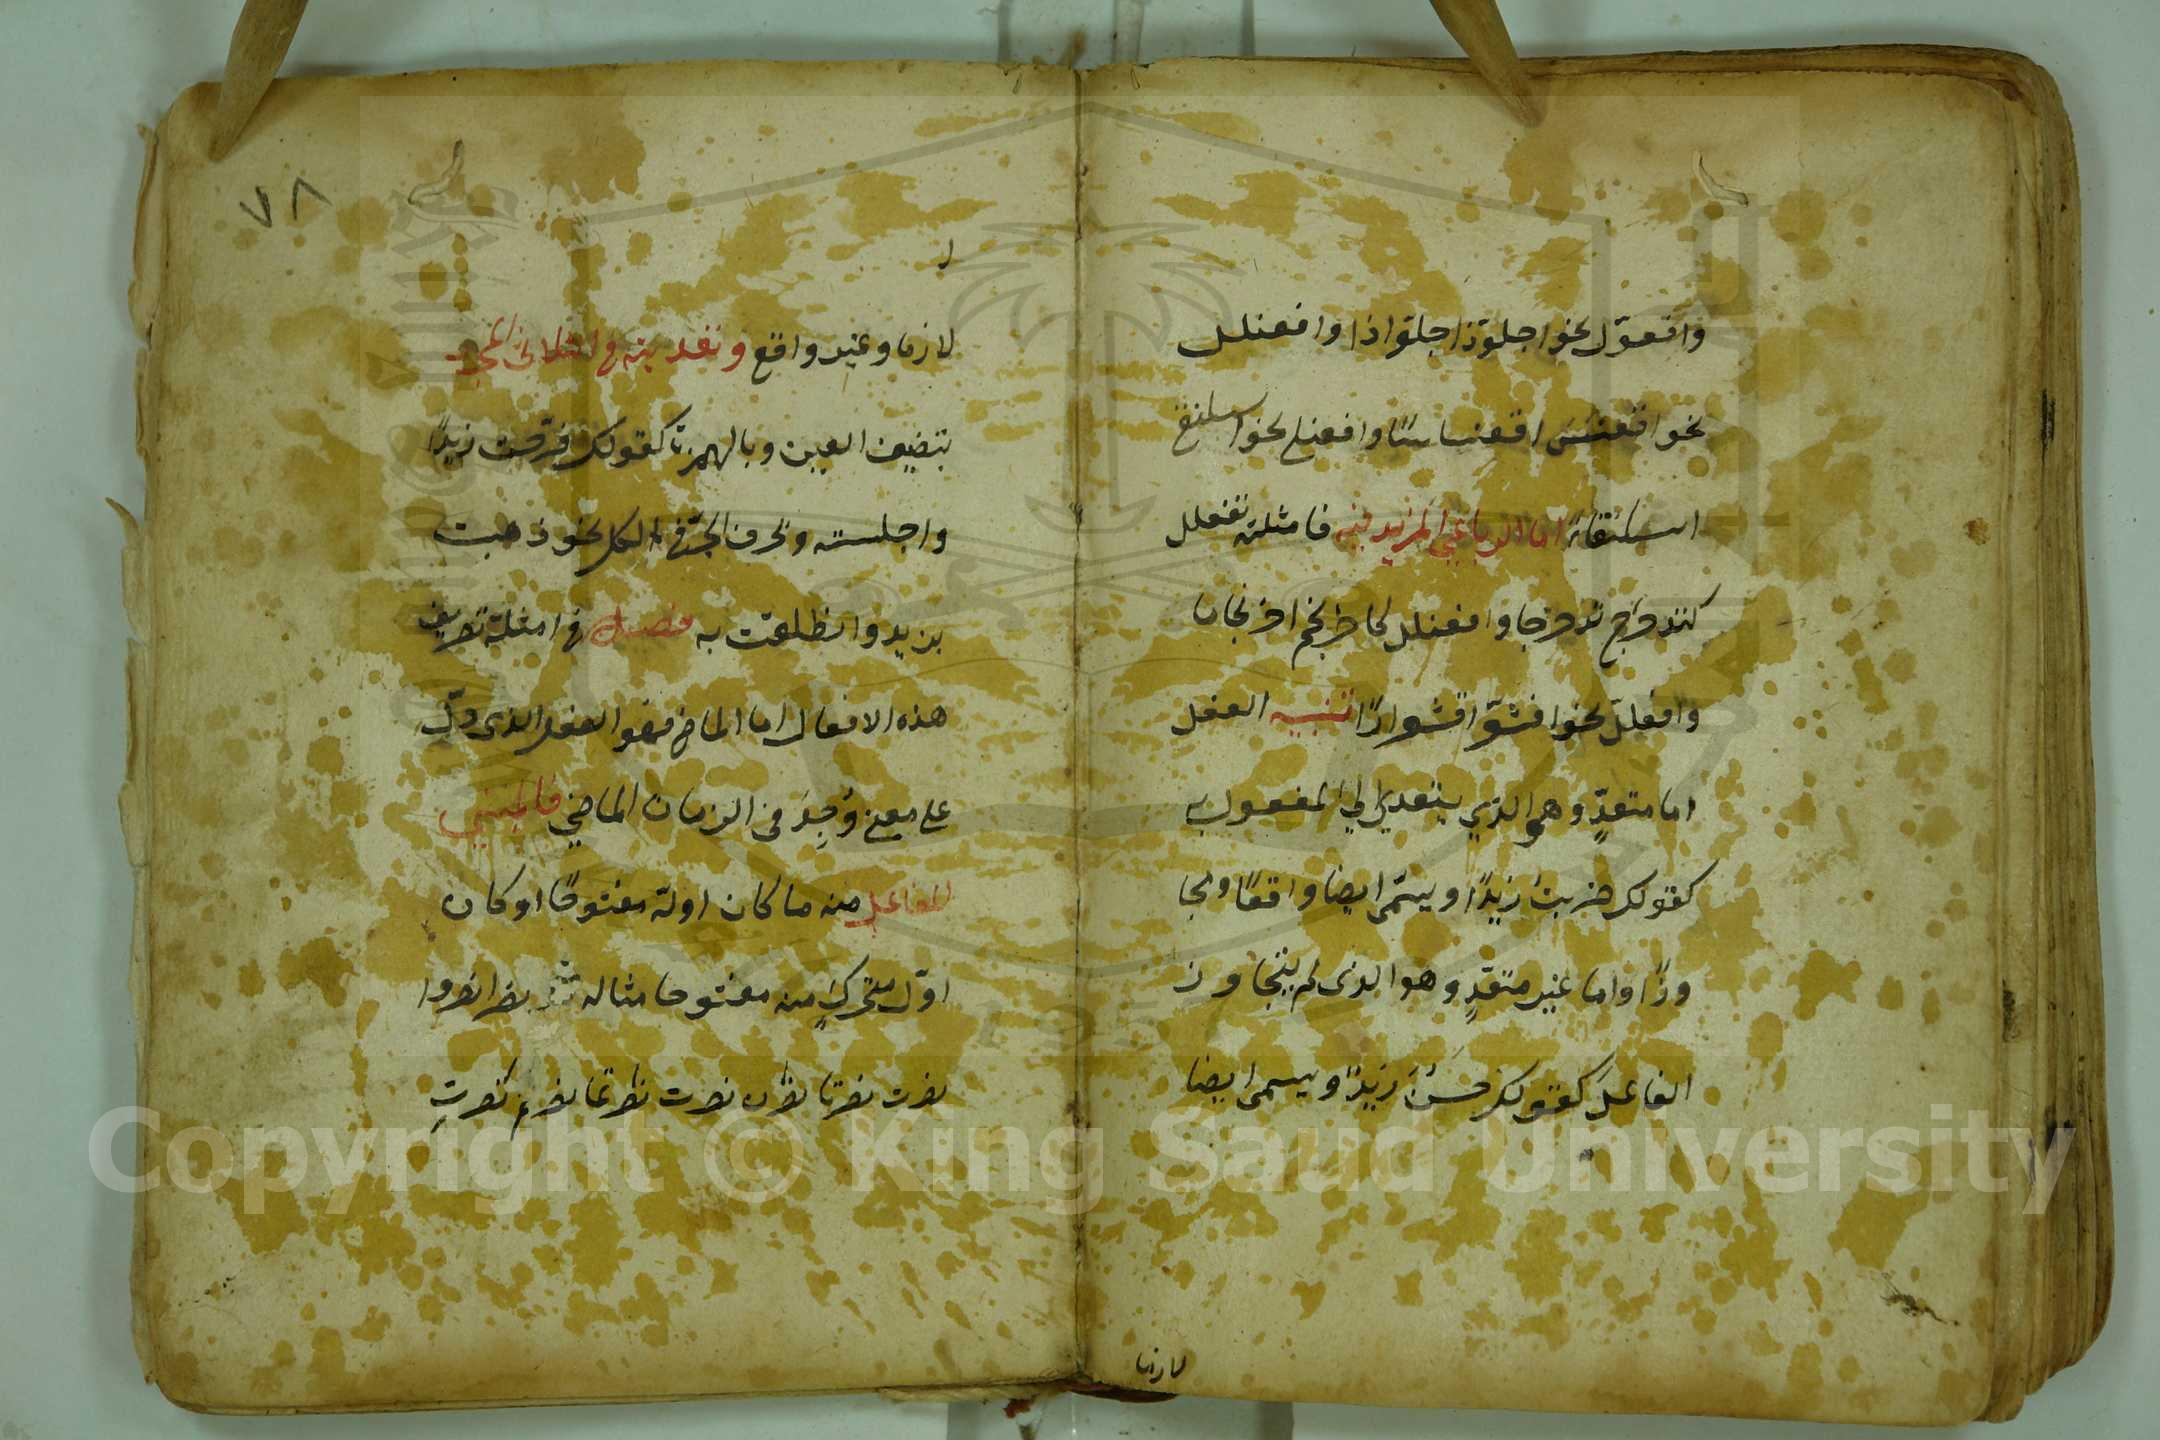 وافعوّل نحو اجلوّذ اجلوّاذا وافعنلل
نحو اقعنسس اقعنساسًا وافعنلى نحو اسلنقى
اسلنقاءً اما الرباعي المزيد فيه فامثلته تفعلل
كتدحرج تدحرجا وافعنلل كاحرنجم احرنجاما
وافعللّ نحو اقشعرّ اقشعرارًا تنبيه الفعل
اما متعدٍّ وهو الذي يتعدى الى المفعول به
كقولك ضربت زيدًا ويسمّى ايضا واقعًا ومجا
وزًا واما غير متعدٍّ وهو الذى لم يتجاوز
الفاعل كقولك حَسُنَ زيدًا ويسمى ايضا
لازما
٧٨
لازما وغير واقع وتعديته في الثلاثي المجرد
بتضعيف العين وبالهمزة كقولك فرّحت زيدًا
واجلسته وبحرف الجرّ في الكل نحو ذهبت
بزيد وانطلقت به فصل في امثلة تصريف
هذه الافعال اما الماضي فهو الفعل الذى دلّ
على معنى وُجِدَ فى الزمان الماضي فالمبني
للفاعل منه ما كان اولهٗ مفتوحًا او كان
اوّل متحركٍ منه مفتوحا مثاله نصر نصرا نصروا
نصرت نصرتا نصرن نصرت نصرتما نصرتم نصرتِ
Copyright © King Saud University